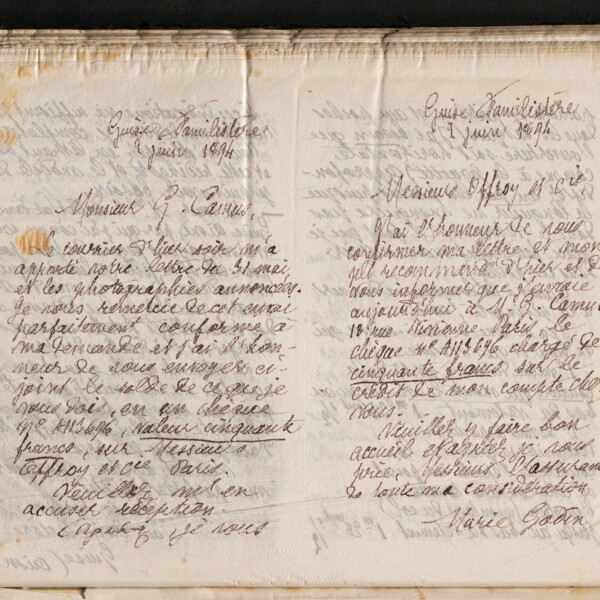 Guise, Familistère
2 juin 1894
Monsieur G. Camus,
Le courrier d'hier soir m'a
apporté votre lettre du 31 mai,
et les photographies annoncées.
Je vous remercie de cet envoi
parfaitement conforme à
ma demande et j'ai l'hon-
neur de vous envoyer ci-
joint le solde de ce que je
vous dois, en un chèque
No A113696, valeur cinquante
francs, sur Messieurs
Offroy et Cie Paris.
Veuillez m'en
accuser réception.
je vous
Guise, Familistère
2 juin 1894
Messieurs Offroy et Cie,
J'ai l'honneur de vous
confirmer ma lettre et mon
pli recommandé d'hier et de
vous informer que j'envoie
aujourd'hui à M. G. Camus
rue Vivienne Paris, le
chèque No A113696 chargé de
cinquante francs sur le
crédit de mon compte chez
vous.
Veuillez y faire bon
accueil et agréez je vous
prie, Messieurs l'assurance
de toute ma considération
Marie Godin